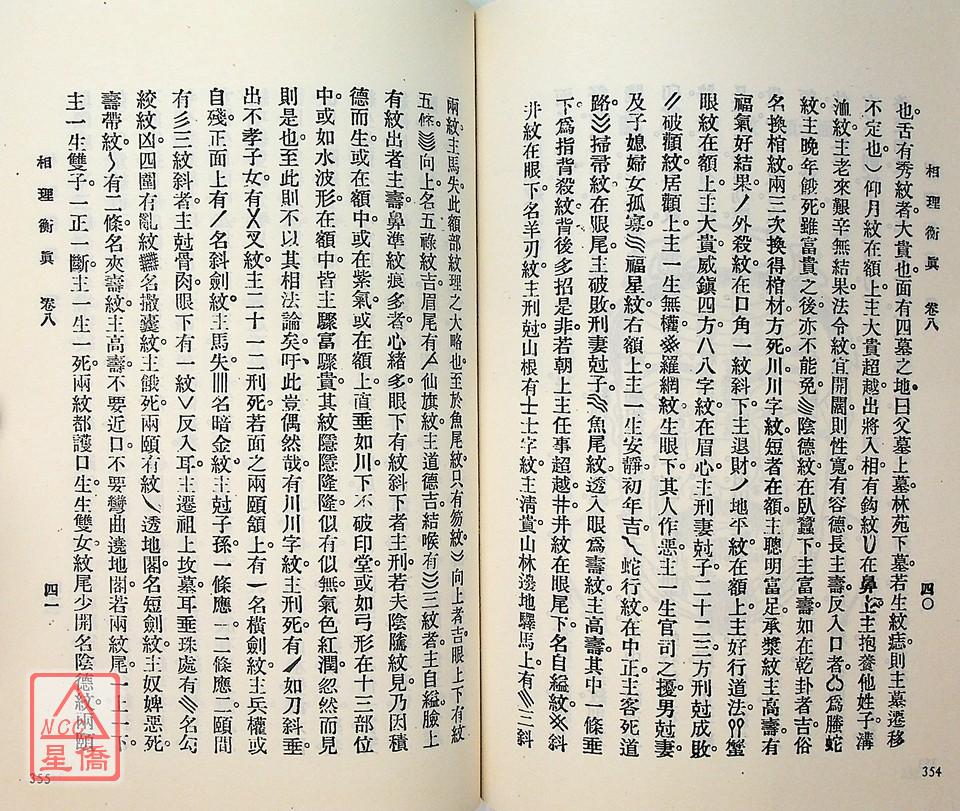 相理衡眞　卷八　四〇
也舌有秀紋者大貴也面有四墓之地曰父墓上墓林苑下墓若生紋痣則主墓遷移
不定也〉仰月紋在額上主大貴超越出將入相有鈎紋U在鼻上主抱養他姓子溝
洫紋主老來艱辛無結果法令紋宜開闊則性寬有容德長主壽反入口者爲騰蛇
紋主晚年餓死雖富貴之後亦不能免彡陰德紋在臥蠶下主富壽如在乾卦者吉俗
名換棺紋兩三次換得棺材方死川川字紋短者在額主聰明富足承漿紋主高壽有
福氣好結果/外殺紋在口角一紋斜下主退財ノ地平紋在額上主好行道法蟹
眼紋在額上主大貴威鎭四方八八字紋在眉心主刑妻尅子二十二三方刑尅成敗
//破顴紋居顴上主一生無權※羅網紋生眼下其人作惡主一生官司之擾男尅妻
及子媳婦女孤寡福星紋右額上主一生安靜初年吉蛇行紋在中正主客死道
路掃帚紋在眼尾主破敗刑妻尅子魚尾紋透入眼爲壽紋主高壽其中一條垂
下爲指背殺紋背後多招是非若朝上主任事超越井井紋在眼尾下名自縊紋※斜
井紋在眼下名羊刃紋主刑尅山根有士士字紋主淸貴山林邊地驛馬上有三斜
354
兩紋主馬失此額部紋理之大略也至於魚尾紋只有笏紋》向上者吉眼上下有紋
五條向上名五祿紋吉眉尾有人仙旗紋主道德吉結喉有三紋者主自縊臉上
有紋出者主壽鼻準紋痕多者心緒多眼下有紋斜下者主刑若夫陰隲紋見乃因積
德而生或在額中或在紫氣或在額上直垂如川下不破印堂或如弓形在十三部位
中或如水波形在額中皆主驟富驟貴其紋隱隱隆隆似有似無氣色紅潤忽然而見
則是也至此則不以其相法論矣吁此豈偶然哉有川川字紋主刑死有/如刀斜垂
出不孝子女有㐅叉紋主二十一二刑死若面之兩頤頷上有一名橫劍紋主兵權或
自殘正面上有/名斜劍紋主馬失名暗金紋主尅子孫一條應一二條應二頤間
有彡三紋斜者主尅骨肉眼下有一紋∨反入耳主遷祖上坟墓耳垂珠處有名勾
絞紋凶四圍有亂紋名撒囊紋主餓死兩頤有紋透地閣名短劍紋主奴婢惡死
壽帶紋有二條名夾壽紋主高壽不要近口不要彎曲遶地閣若兩紋尾一上一下
主一生雙子一正一斷主一生一死兩紋都護口生生雙女紋尾少開名陰德紋兩頤
相理衡眞　卷八　四一
355
NCC
星僑